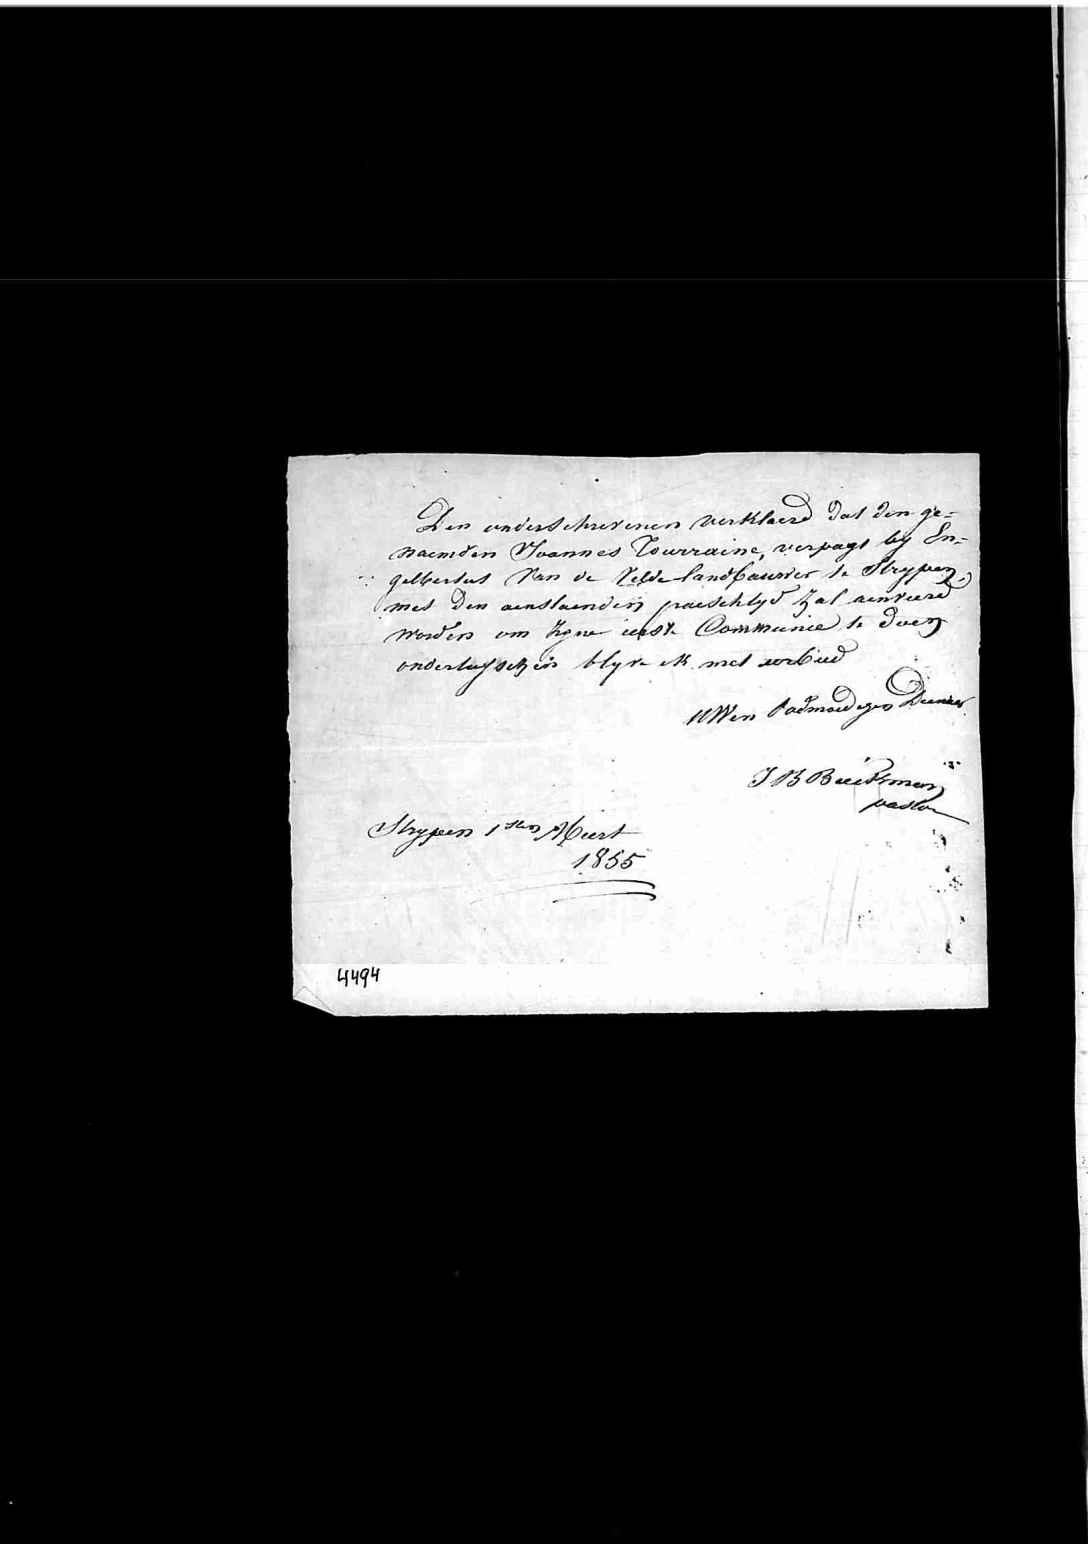 Den onderschrevenen verklaerd dat den ge=
naemden Joannes Tourraine, verpagt by En=
gelbertus Van de Velde landbauwer te Strypen,
met den aenstaenden paeschtyd zal aenveerd
worden om zyne eerste Communie te doen
ondertusschen blyve ik met eerbied
UWen oodmoedigen Dienaer
J B Beeckman
pastor
Strypen 1sten Meert
1855
4494